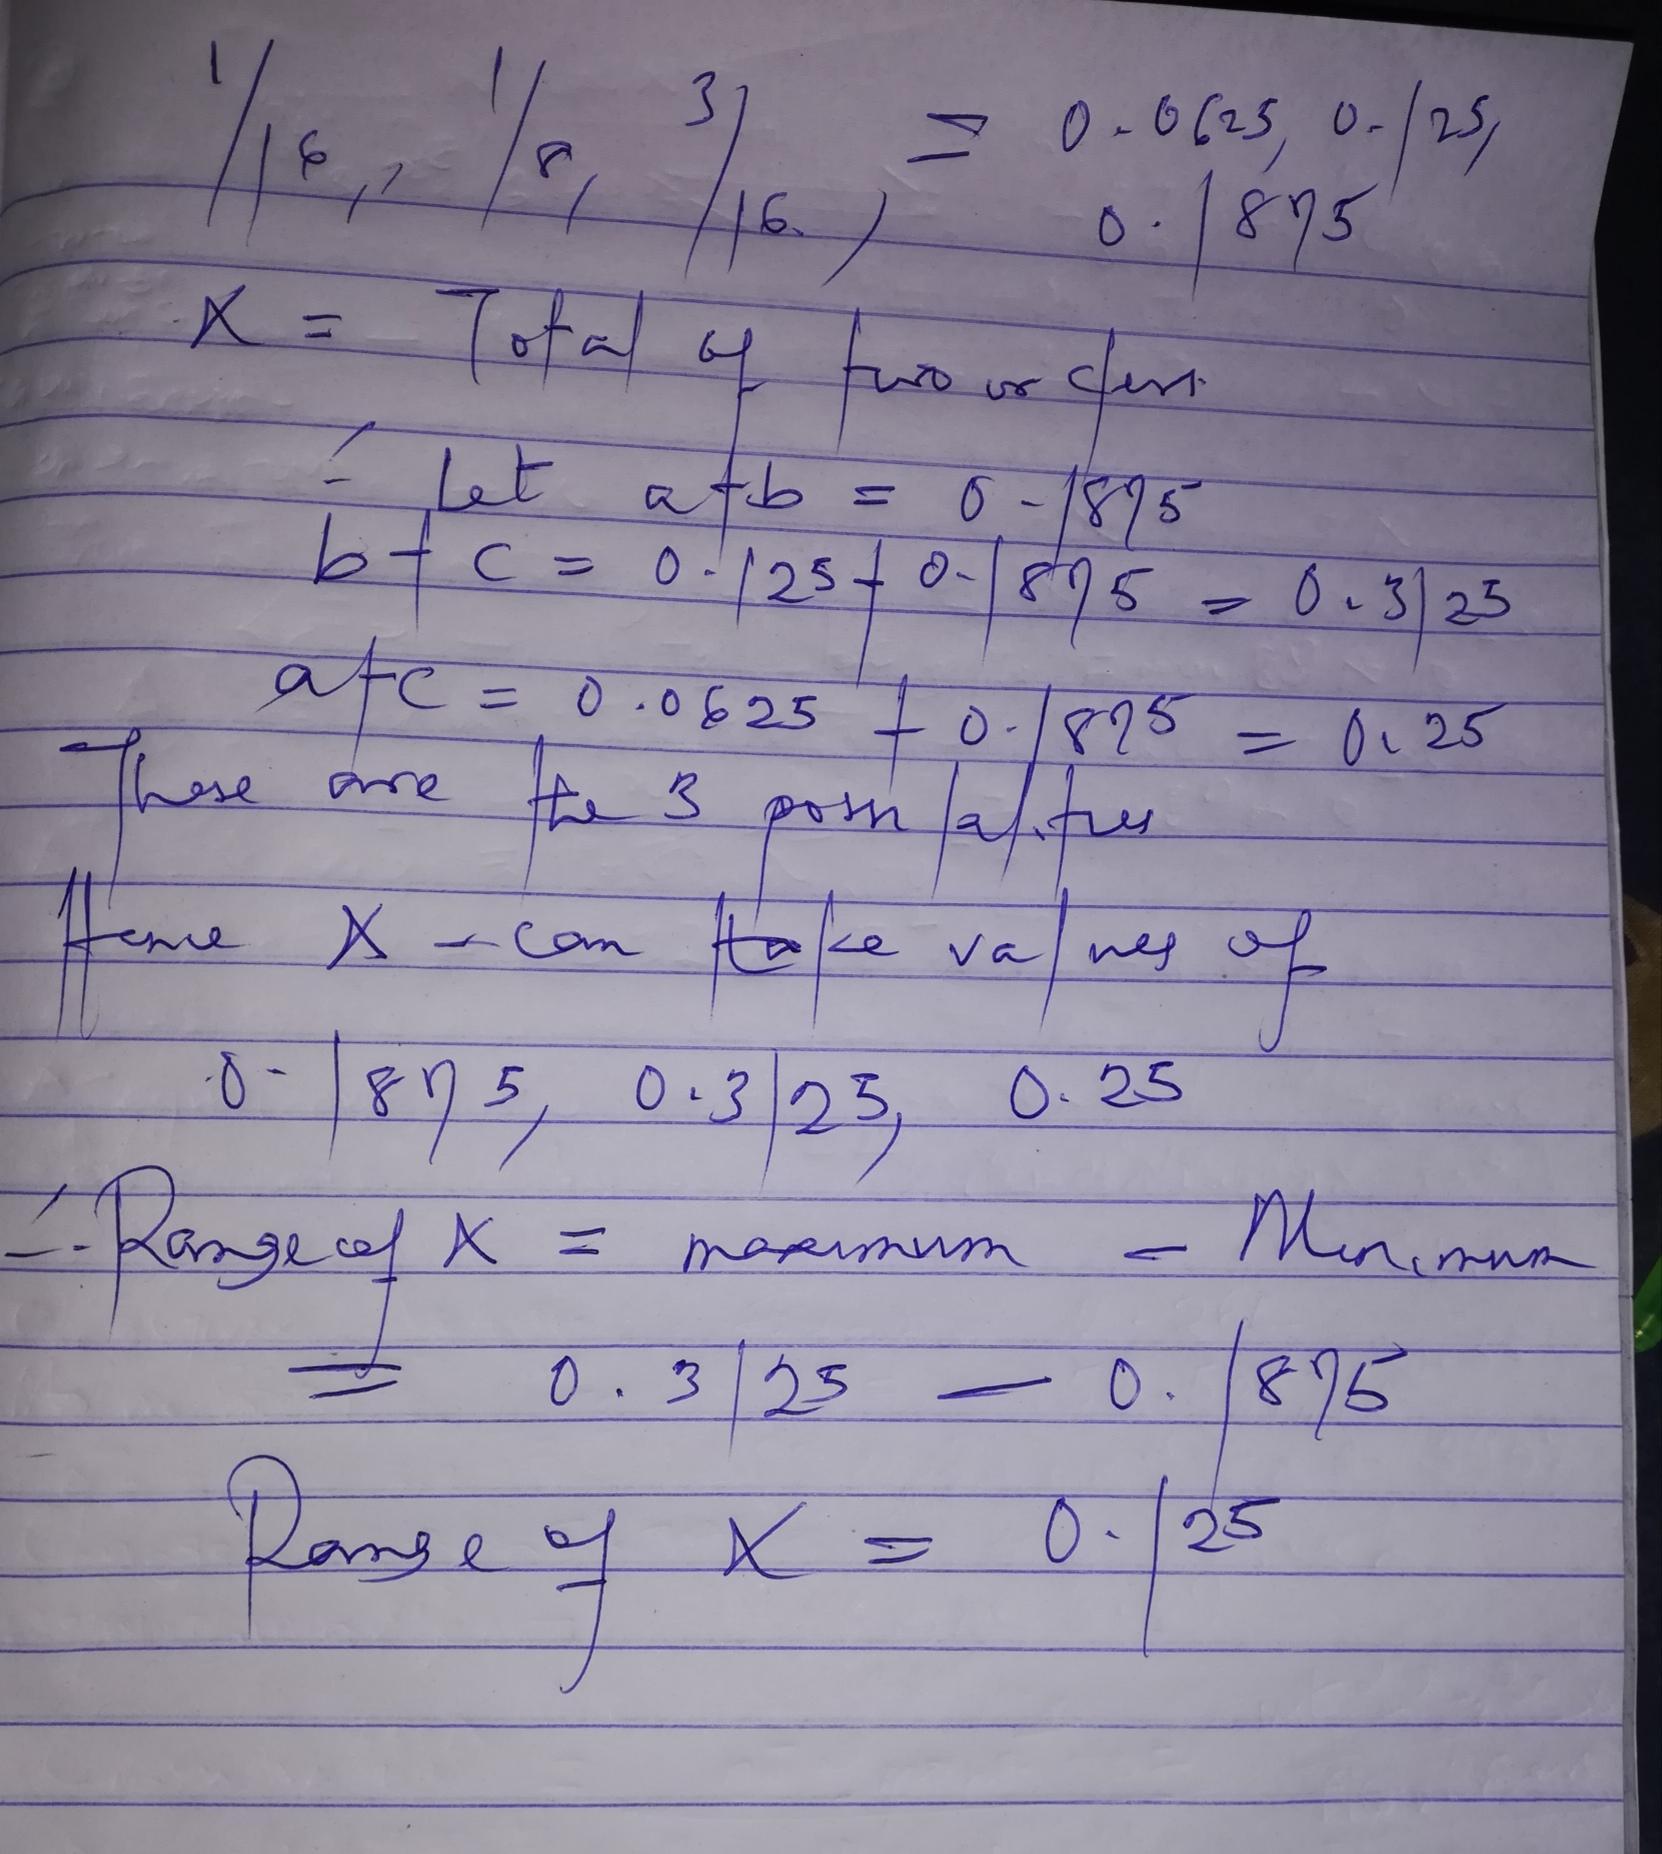 1/16, 1/8, 3/16, = 0.0625, 0.125,
0.1875
X = Total of two orders
∴ Let a+b = 0.1875
b+c = 0.125+0.1875 = 0.3125
a+c = 0.0625 + 0.1875 = 0.25
These are the 3 possibilities
Hence X - can take values of
0.1875, 0.3125, 0.25
∴ Range of X = maximum - Minimum
= 0.3125 - 0.1875
Range of X = 0.125